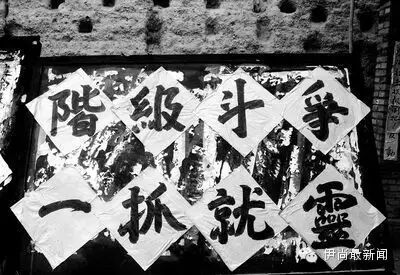 階級斗爭
一抓就靈
伊尚最新闻